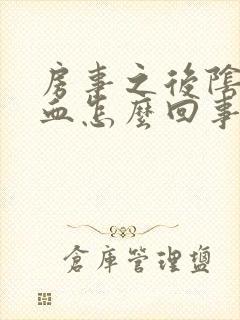 房事之後陰
血怎麼回事
倉庫管理鹽